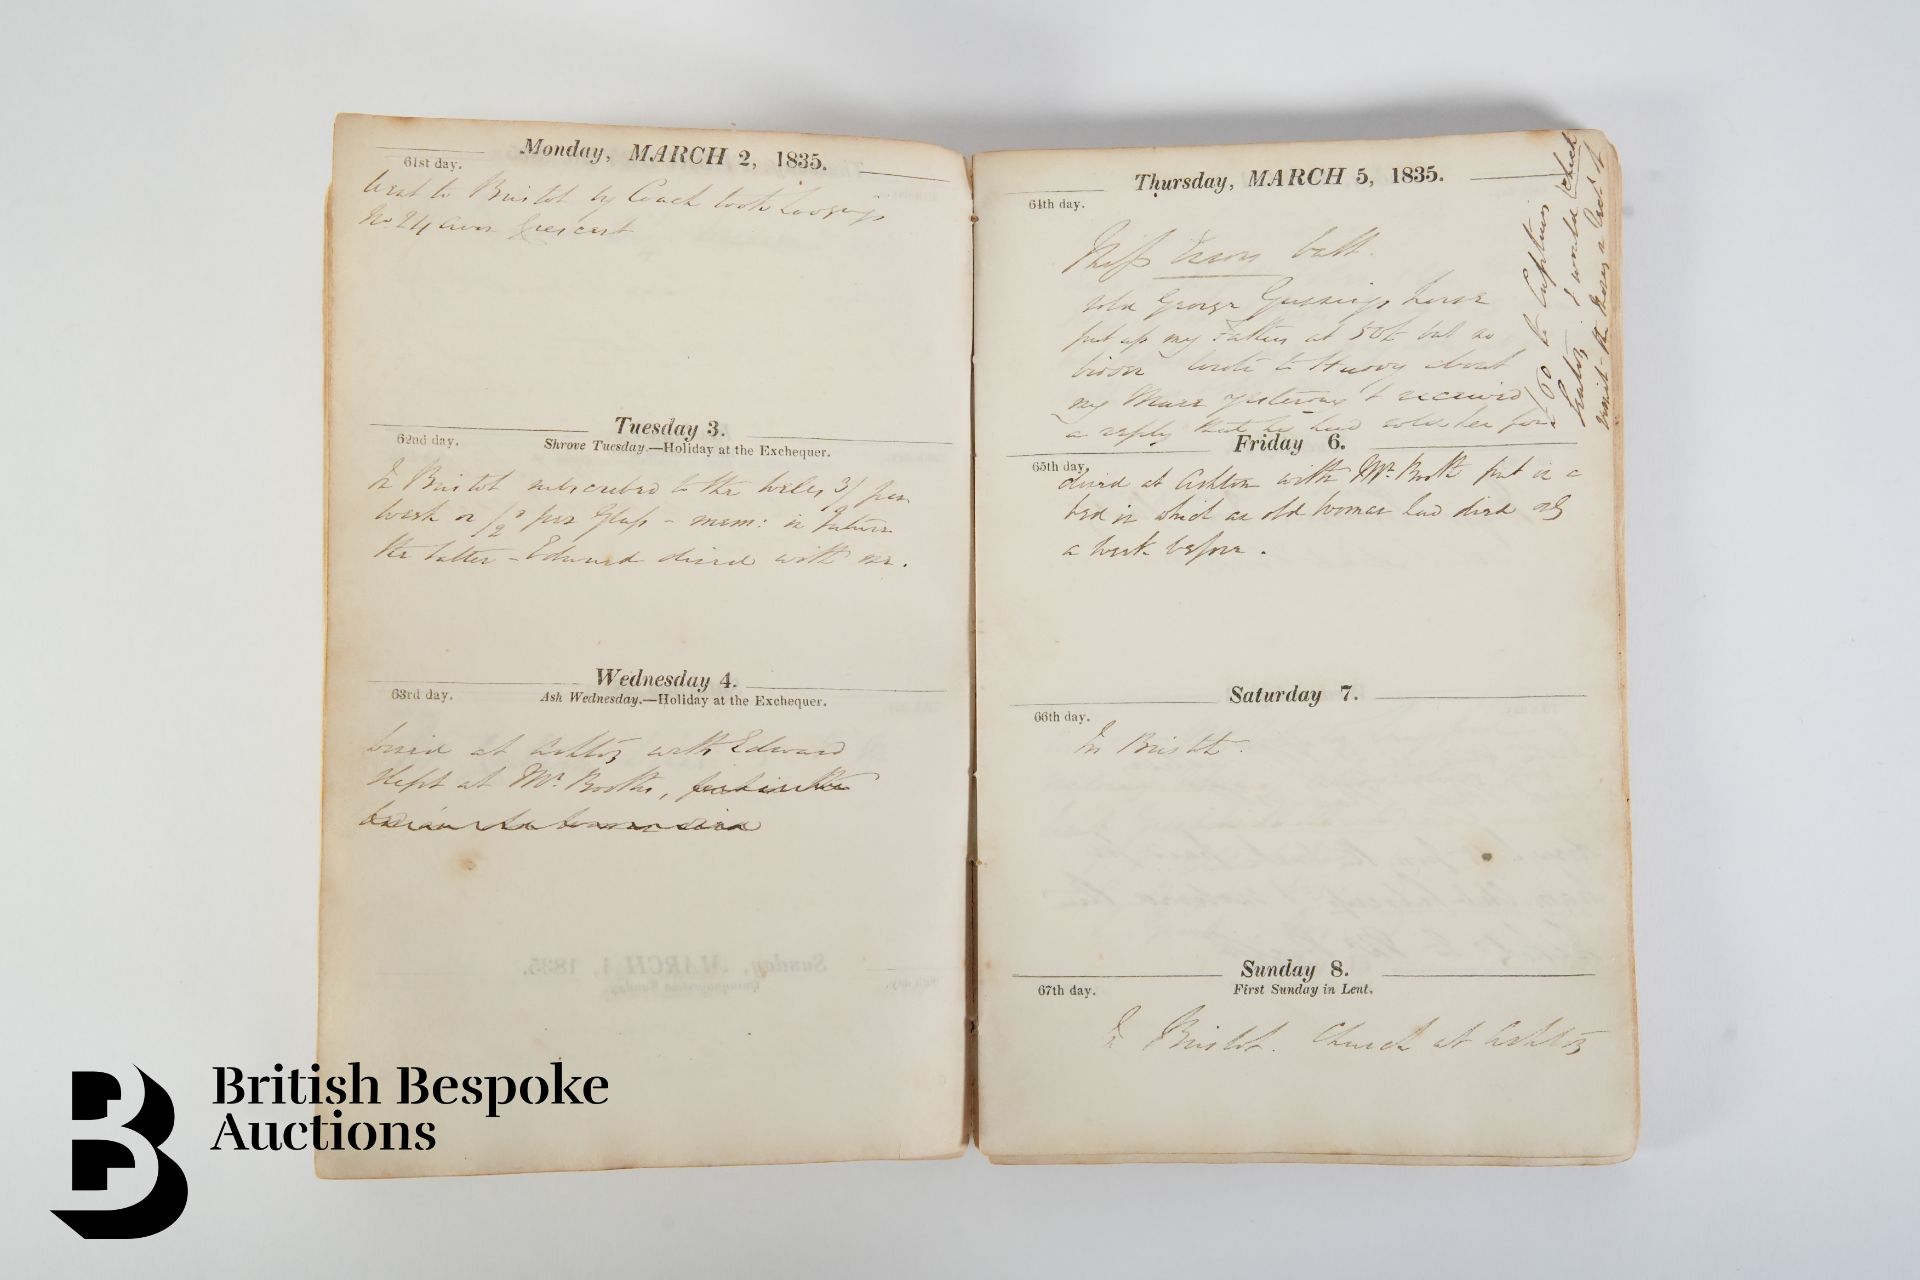 Monday, MARCH 2, 1835.
61st day.
Went to Bristol by Coach took Lodgings
No 24 Crescent
Tuesday 3.
62nd day.
Shrove Tuesday.—Holiday at the Exchequer.
In Bristol subscribed to the Wells 3/ per
week or per Glass - mem: in future
the latter - Edward dined with me.
Wednesday 4.
63rd day.
Ash Wednesday.—Holiday at the Exchequer.
dined at Ashton with Edward
slept at Mr. Booths,
Thursday, MARCH 5, 1835.
64th day.
Miss ball.
sold George horse
put up my Fathers at 50£ but no
wrote to about
my Mare yesterday & received
a reply that he had sold her for
£60 to Captain
I would
the
Friday 6.
65th day.
dined at Ashton with Mr. Booth put in a
bed in which an old woman had died only
a week before.
Saturday 7.
66th day.
In Bristol.
Sunday 8.
67th day.
First Sunday in Lent.
In Bristol. Church at Ashton
British Bespoke
Auctions